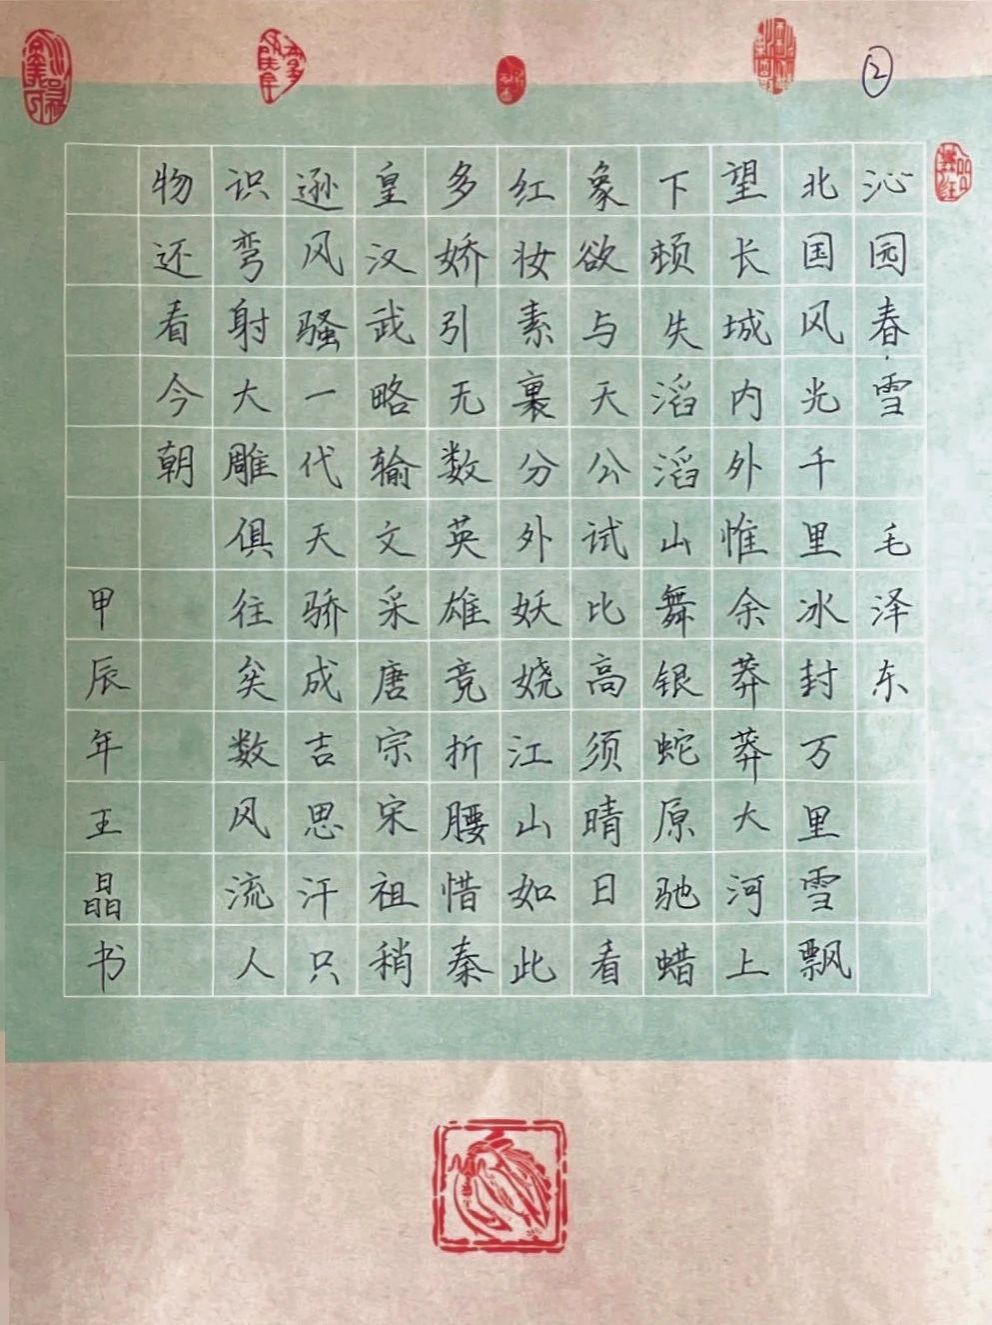 ②
沁园春·雪 毛泽东
北国风光千里冰封万里雪飘
望长城内外惟余莽莽大河上
下顿失滔滔山舞银蛇原驰蜡
象欲与天公试比高须晴日看
红妆素裹分外妖娆江山如此
多娇引无数英雄竞折腰惜秦
皇汉武略输文采唐宗宋祖稍
逊风骚一代天骄成吉思汗只
识弯射大雕俱往矣数风流人
物还看今朝
甲辰年王晶书